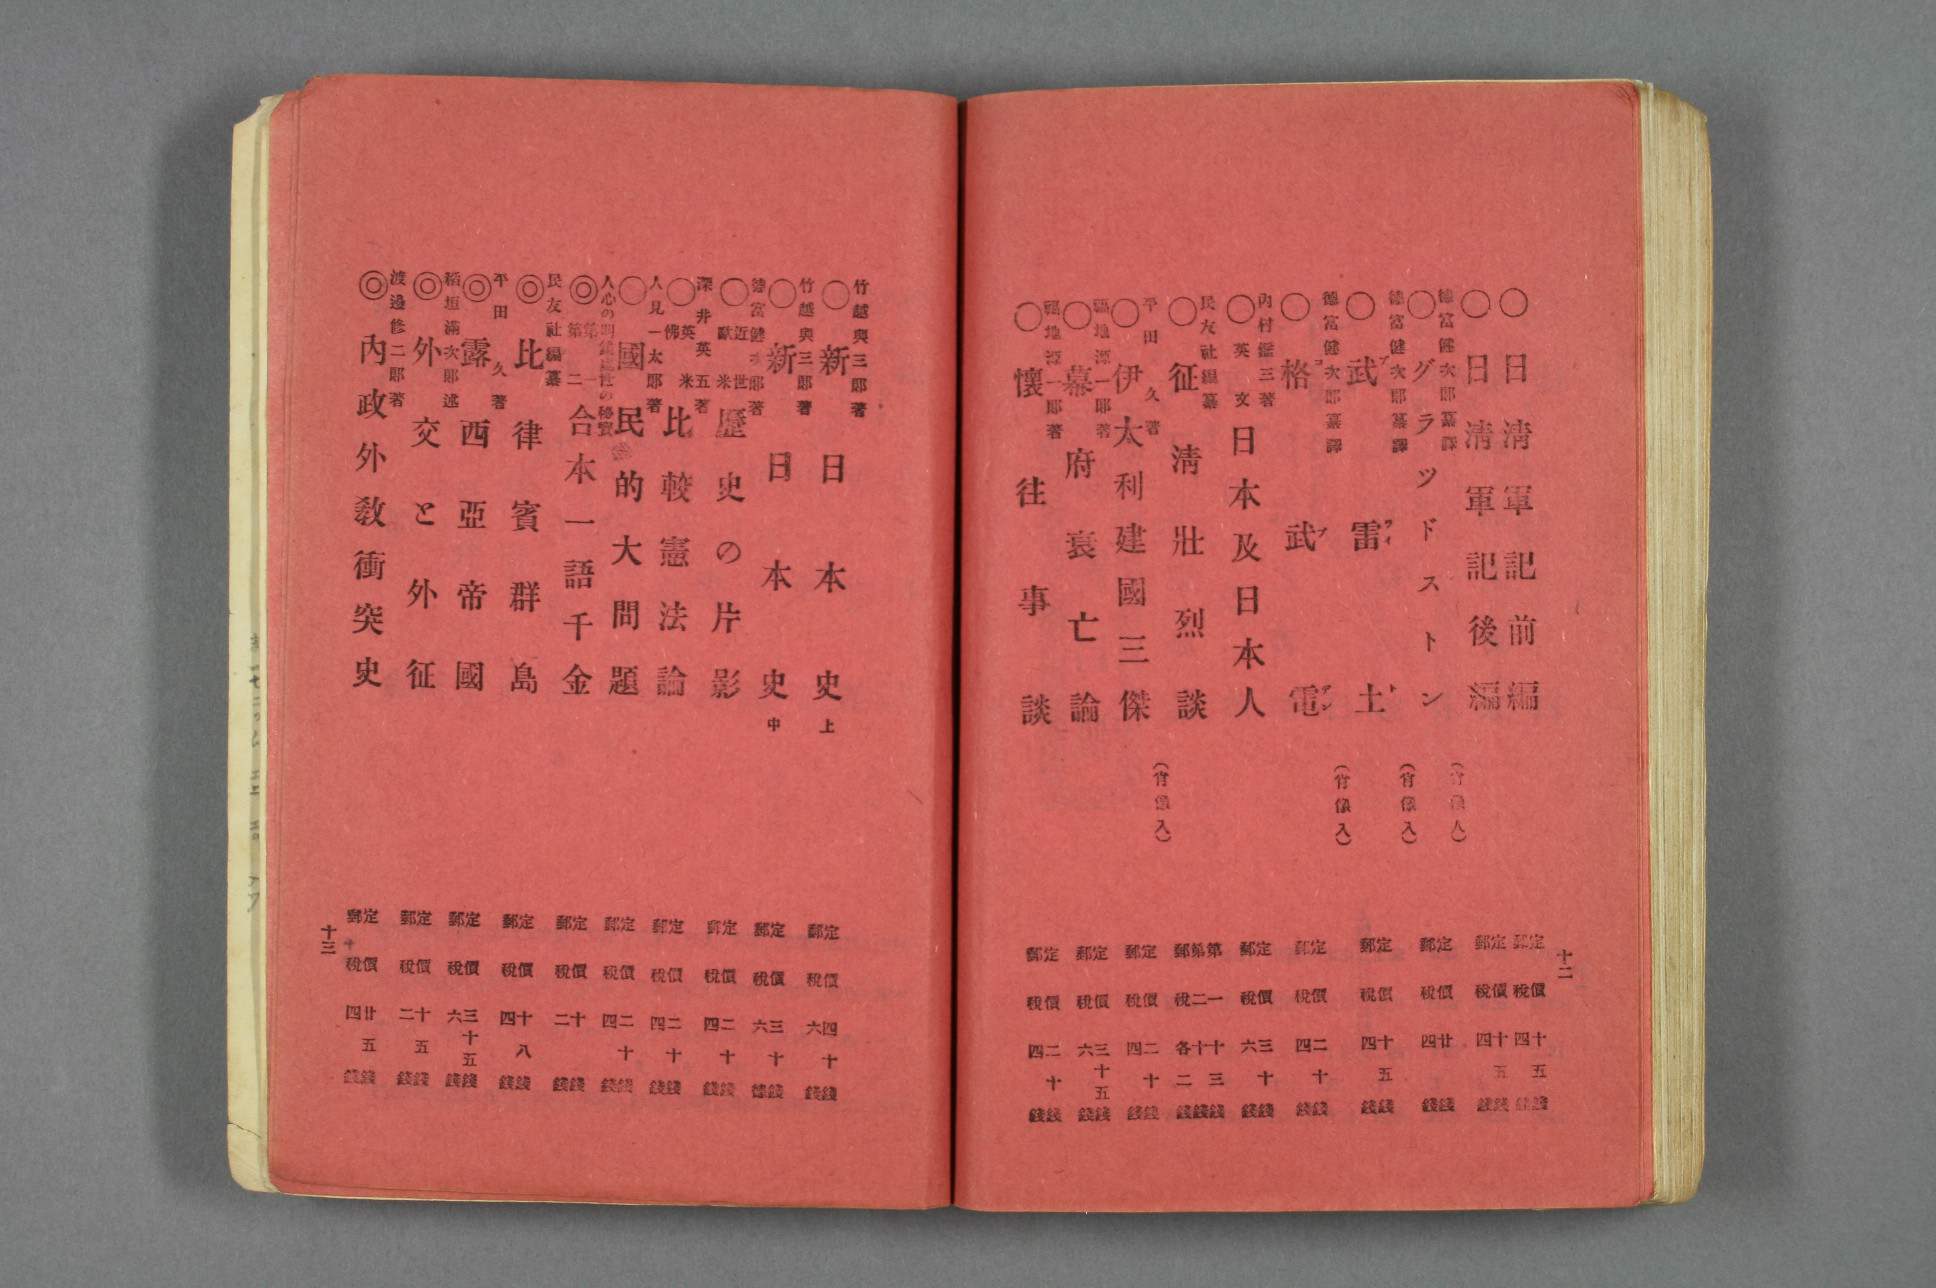 十二
○日清軍記前編
定價十五錢
郵稅四錢
○日清軍記後編
定價十五錢
郵稅四錢
德富健次郎纂譯
○グラッドストン
(肖像入)
定價廿錢
郵稅四錢
德富健次郎纂譯
○武雷土
(肖像入)
定價十五錢
郵稅四錢
德富健次郎纂譯
○格武電
(肖像入)
定價二十錢
郵稅四錢
內村鑑三著
○英文日本及日本人
定價三十錢
郵稅六錢
民友社編纂
○征清壯烈談
第一十三錢
第二十錢
郵稅各二錢
平田久著
○伊太利建國三傑
(肖像入)
定價二十錢
郵稅四錢
福地源一郎著
○幕府衰亡論
定價三十五錢
郵稅六錢
福地源一郎著
○懷往事談
定價二十錢
郵稅四錢
竹越與三郎著
○新日本史上
定價四十錢
郵稅六錢
竹越與三郎著
○新日本史中
定價三十錢
郵稅六錢
德富健次郎著
○近世歐米歷史の片影
定價二十錢
郵稅四錢
深井英五著
○英米佛比較憲法論
定價二十錢
郵稅四錢
人見一太郎著
○國民的大問題
定價二十錢
郵稅四錢
人心の明鏡處世の秘寶
◎第一第二合本一語千金
定價十錢
郵稅二錢
民友社編纂
◎比律賓群島
定價十八錢
郵稅四錢
平田久著
◎露西亞帝國
定價三十五錢
郵稅六錢
稻垣滿次郎述
◎外交と外征
定價十五錢
郵稅二錢
渡邊修二郎著
◎內政外敎衝突史
定價廿五錢
郵稅四錢
十三